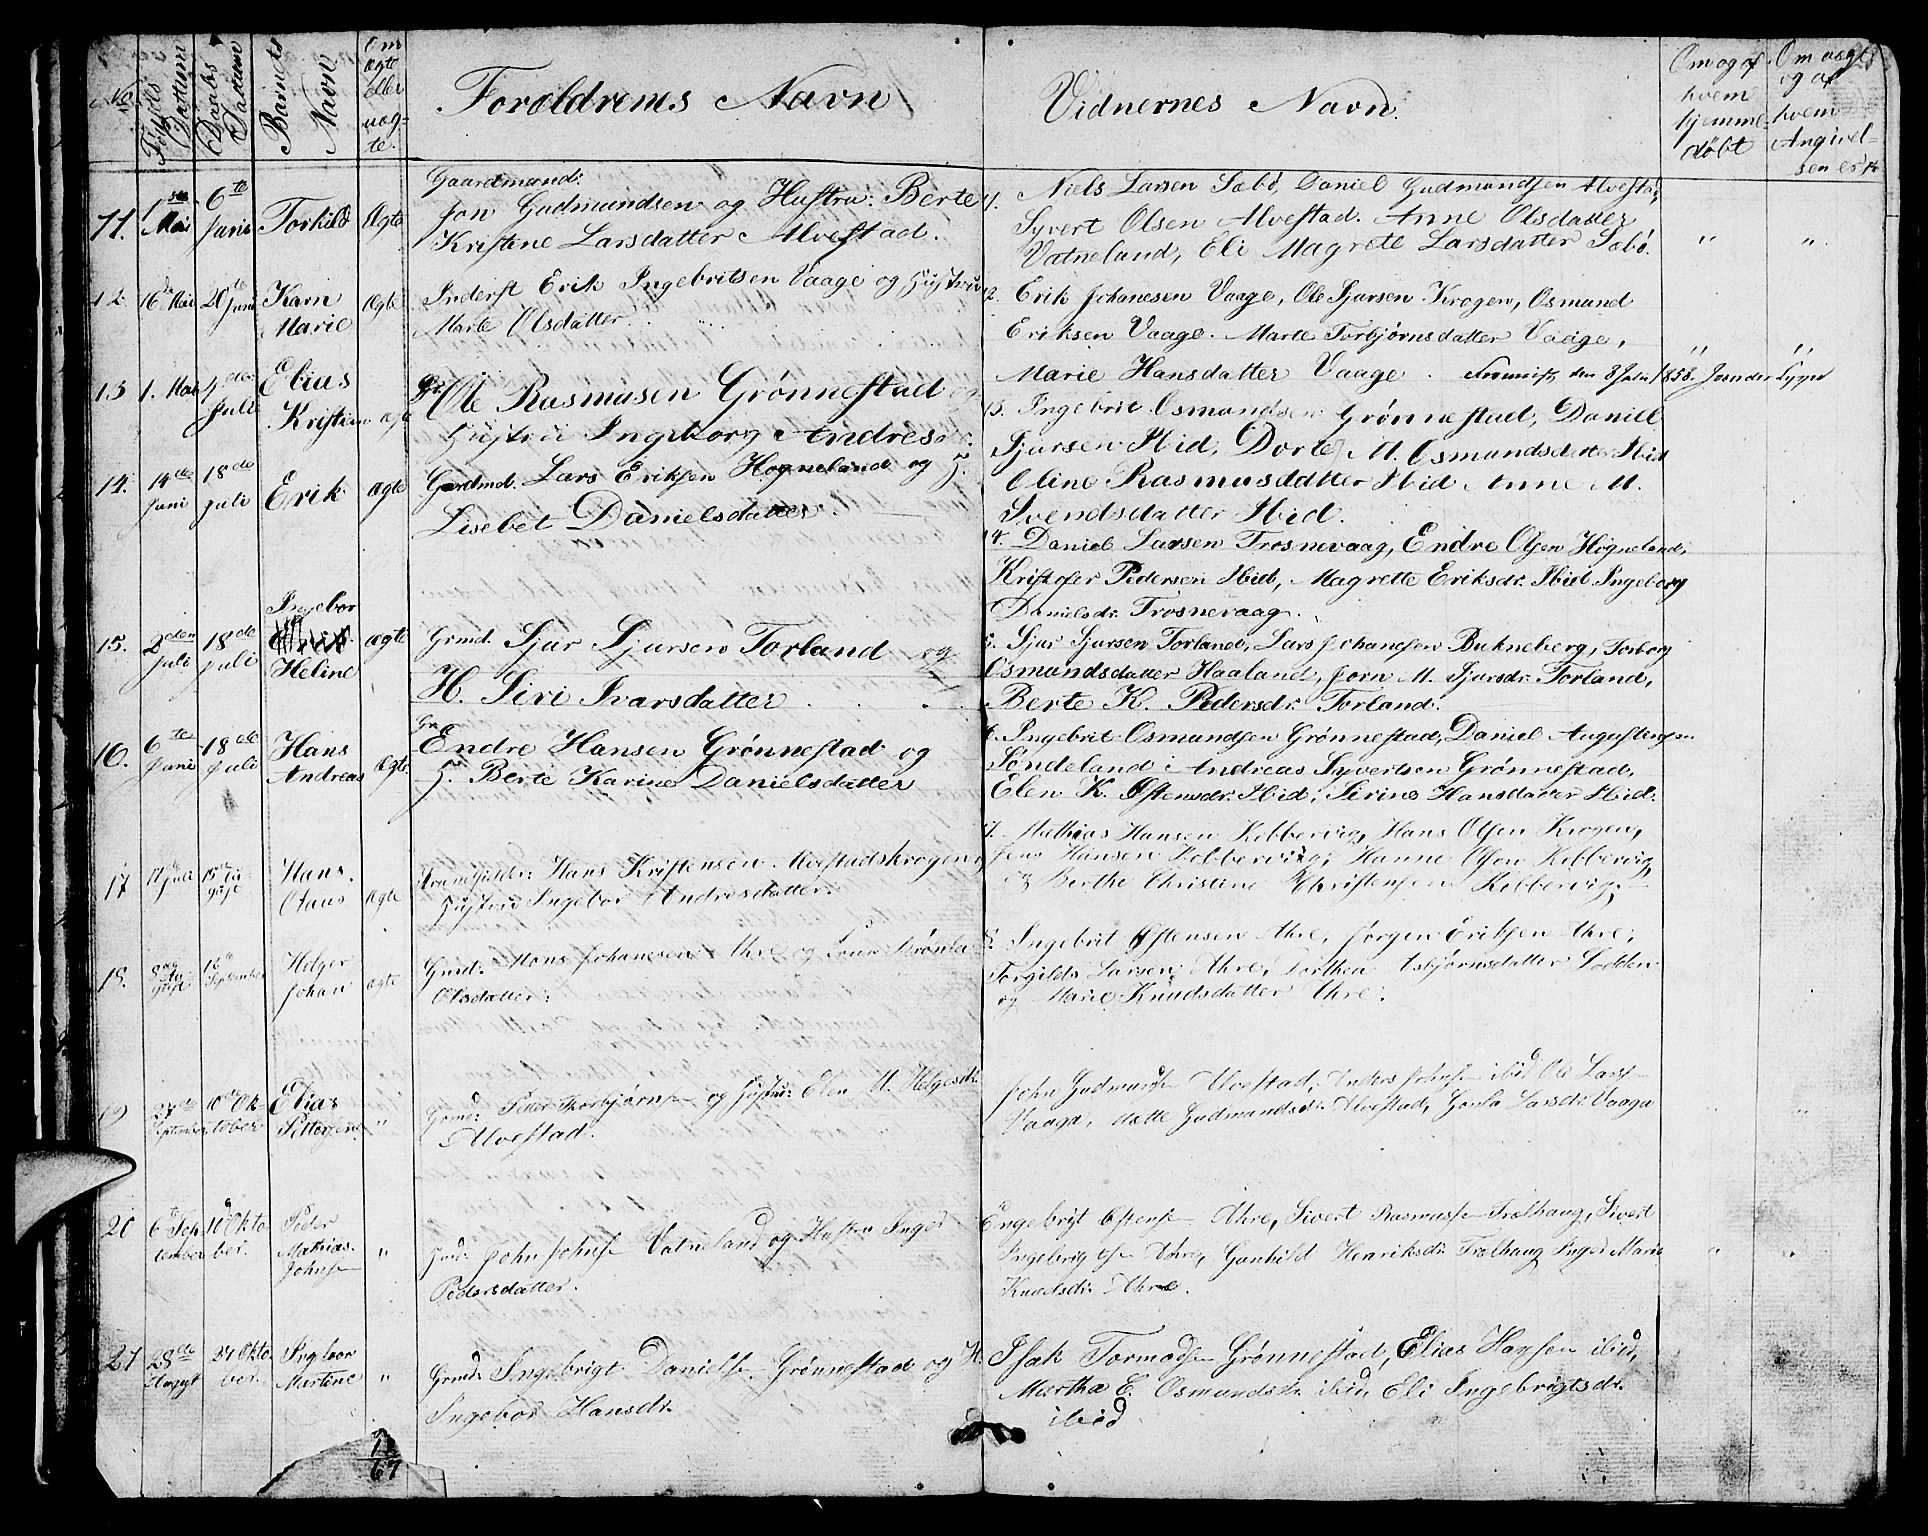 No
Fødsels Datum
Daabs Datum
Barnets Navn
Om ægte eller uægte.
Forældrenes Navn
Vidnernes Navn.
Om og af hvem hjemmedøbt
Om og af hvem Angivelsen er
11. 1ste Mai 6te Juni Torkild Ægte
Gaardmand:
Jon Gudmundsen og Hustru: Berte
Kristine Larsdatter Alvestad.
Niels Larsen Sæbø, Daniel Gudmundsen Alvestad,
Syvert Olsen Alvestad. Anne Olsdatter
Vatneland, Eli Magrete Larsdatter Sæbø.
" "
12. 16de Mai 20te Juni Karn Marie Ægte
Inderst Erik Ingebritsen Vaage og Hustru
Marte Olsdatter
12. Erik Johanesen Vaage, Ole Sjursen Krogen, Osmund
Eriksen Vaage. Marte Torbjørnsdatter Vaage,
Marie Hansdatter Vaage.
" "
13 1. Mai 4de Juli Elias Kristian ægte
Ole Rasmusen Grønnestad og
Hustru Ingeborg Andresd.
13. Ingebrit Osmundsen Grønnestad, Daniel
Sjursen Ibid, Dorte M. Osmundsdatter Ibid
Oline Rasmusdatter Ibid Anne M.
Svendsdatter Ibid.
14. 14de Juni 18de Juli Erik ægte
Gardmd. Lars Eriksen Hogneland og H.
Lisebet Danielsdatter.
14. Daniel Larsen Trosnevaag, Endre Olsen Høgneland,
Kristofer Pedersen Ibid, Magrette Eriksdr. Ibid Ingeborg
Danielsdr. Trosnevaag.
15. 2den Juli 18de Juli Ingebor Heline ægte
Grmd. Sjur Sjursen Torland og
H. Siri Ivarsdatter
5. Sjur Sjursen Torland, Lars Johanesen Bukneberg, Torborg
Osmundsdatter Haaland, Jorn M. Sjursdr. Torland,
Berte K. Pedersdr. Torland.
16. 6te Juni 18de Juli Hans Andreas Ægte.
Gr.
Endre Hansen Grønnestad og
H. Berte Karine Danielsdatter
6. Ingebrit Osmundsen Grønnestad, Daniel Augustensen
Søndeland, Andreas Syvertsen Grønnestad,
Elen K. Østensdr. Ibid, Serine Hansdatter Ibid.
17 17de Juli 15de August Hans. Olaus ægte
Strandsidder: Hans Kristensen Alvestadskrogen og
Hustru Ingebor Andresdatter.
7. Mathias Hansen Kobbervig, Hans Olsen Krogen,
Jens Hansen Kobbervig, Hanne Olsen Kobbervig,
og Berthe Christine Christensen Kobbervig.
18. 8de August 12te September Holger Johan ægte
Gmd: Mons Johanesen Ahre og Kone Brønla
Olsdatter.
8. Ingebrit Østensen Ahre, Jørgen Eriksen Ahre,
Torgilds Larsen Ahre, Dorthea Asbjørnsdatter Lodden
og Marie Knudsdatter Ahre.
19 27de September 10de Oktober Elias Pettersen "
Grmd: Peter Thorbjørns og Hustru: Elen M. Helgesdr.
Alvestad.
John Gudmunds Alvestad, Anders Johns ibid Ole Lars
Vaaga, Mette Gudmundsdr. Alvestad, Gunla Larsdr. Vaaga
" "
20 6te September 10de Oktober. Peder Mathias Johns "
Gmd: John Johns Vatneland og Hustru Inger
Pedersdatter.
Engebrigt Østens Ahre, Sivert Rasmuss Trælhaug, Sivert
Ingebrigts Ahre, Gunhild Henriksdr. Trælhaug Inger Marie
Knudsdr. Ahre.
" "
21 28de August 24 Oktober. Ingebor Martine "
Grmd: Ingebrigt Daniels Grønnestad og H.
Ingebor Hansdr.
Isak Tormods Grønnestad, Elias Hansen ibid,
Martha E. Osmundsdr. ibid, Eli Ingebrigtsdr.
ibid
67